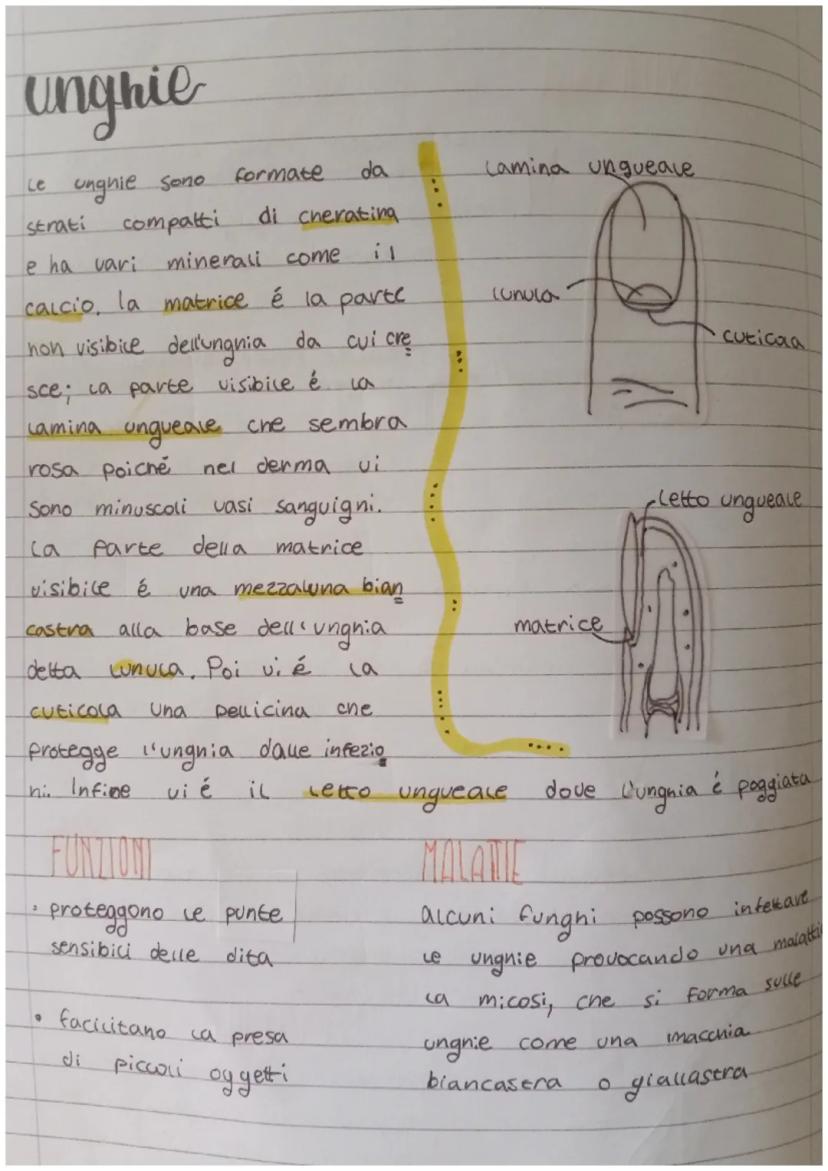 unghie
Le unghie sono formate da
strati compatti di cheratina
e ha vari minerali come il
calcio. la matrice é la parte
non visibile dell'unghia da cui cre
sce; la parte visibile é la
lamina ungueale che sembra
rosa poiché nel derma vi
sono minuscoli vasi sanguigni.
La parte della matrice
visibile é una mezzaluna bian
castra alla base dell'unghia
detta lunula. Poi vi é la
cuticola una pellicina che
protegge l'unghia dalle infezio
ni. Infine vi é il letto ungueale dove l'unghia é poggiata
Lamina ungueale
lunula
cuticola
Letto ungueale
matrice
FUNZIONI
• proteggono le punte
sensibili delle dita
• facilitano la presa
di piccoli oggetti
MALATTIE
alcuni funghi possono infettare
le unghie provocando una malatti
la micosi, che si forma sulle
unghie come una macchia
biancastra o giallastra